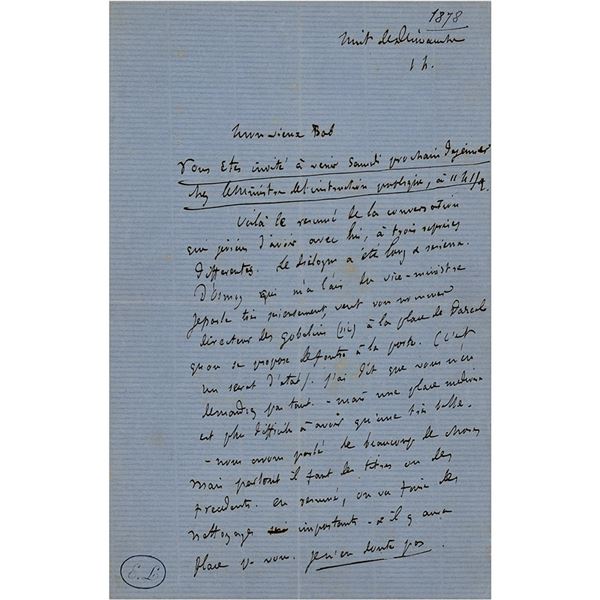 1878
Nuit de Dimanche
1 h.
Monsieur Bob
Vous Etes invité à venir Samedi prochain Dejeuner
chez le Ministre de l'instruction publique, à 11 h 1/4
Voilà le resumé de la conversation
que je viens d'avoir avec lui, à trois reprises
differentes. Le dialogue a été long & serieux.
D'Osmoy qui m'a l'air du vice-ministre
je parle très serieusement, veut vous nommer
directeur des gobelins (sic) à la place de Darcel
qu'on se propose de foutre à la porte. (C'est
un secret d'état). J'ai dit que vous n'en
demandiez pas tant. - mais une place mediocre
est plus difficile à avoir qu'une très belle.
- nous avons parlé de beaucoup de choses
mais partout il faut des titres ou des
precedents. En resumé, on va faire des
nettoyages importants - & il y aura
place p. vous. Je n'en doute pas.
E. L.